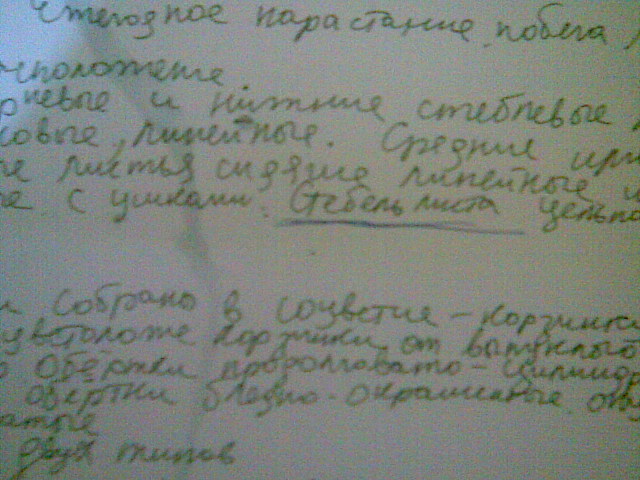 Ежегодное нарастание побега
сположение
рневые и нижние стеблевые
совые, линейные. Средние
ые листья сидячие линейные и
ые с ушками. Стебель листа цельн
и собрано в соцветие - корзинка
цветоложе корзинки от выпуклой
о обёртки продолговато - цилиндр
обёртки бледно - окрашенные
атые
двух типов